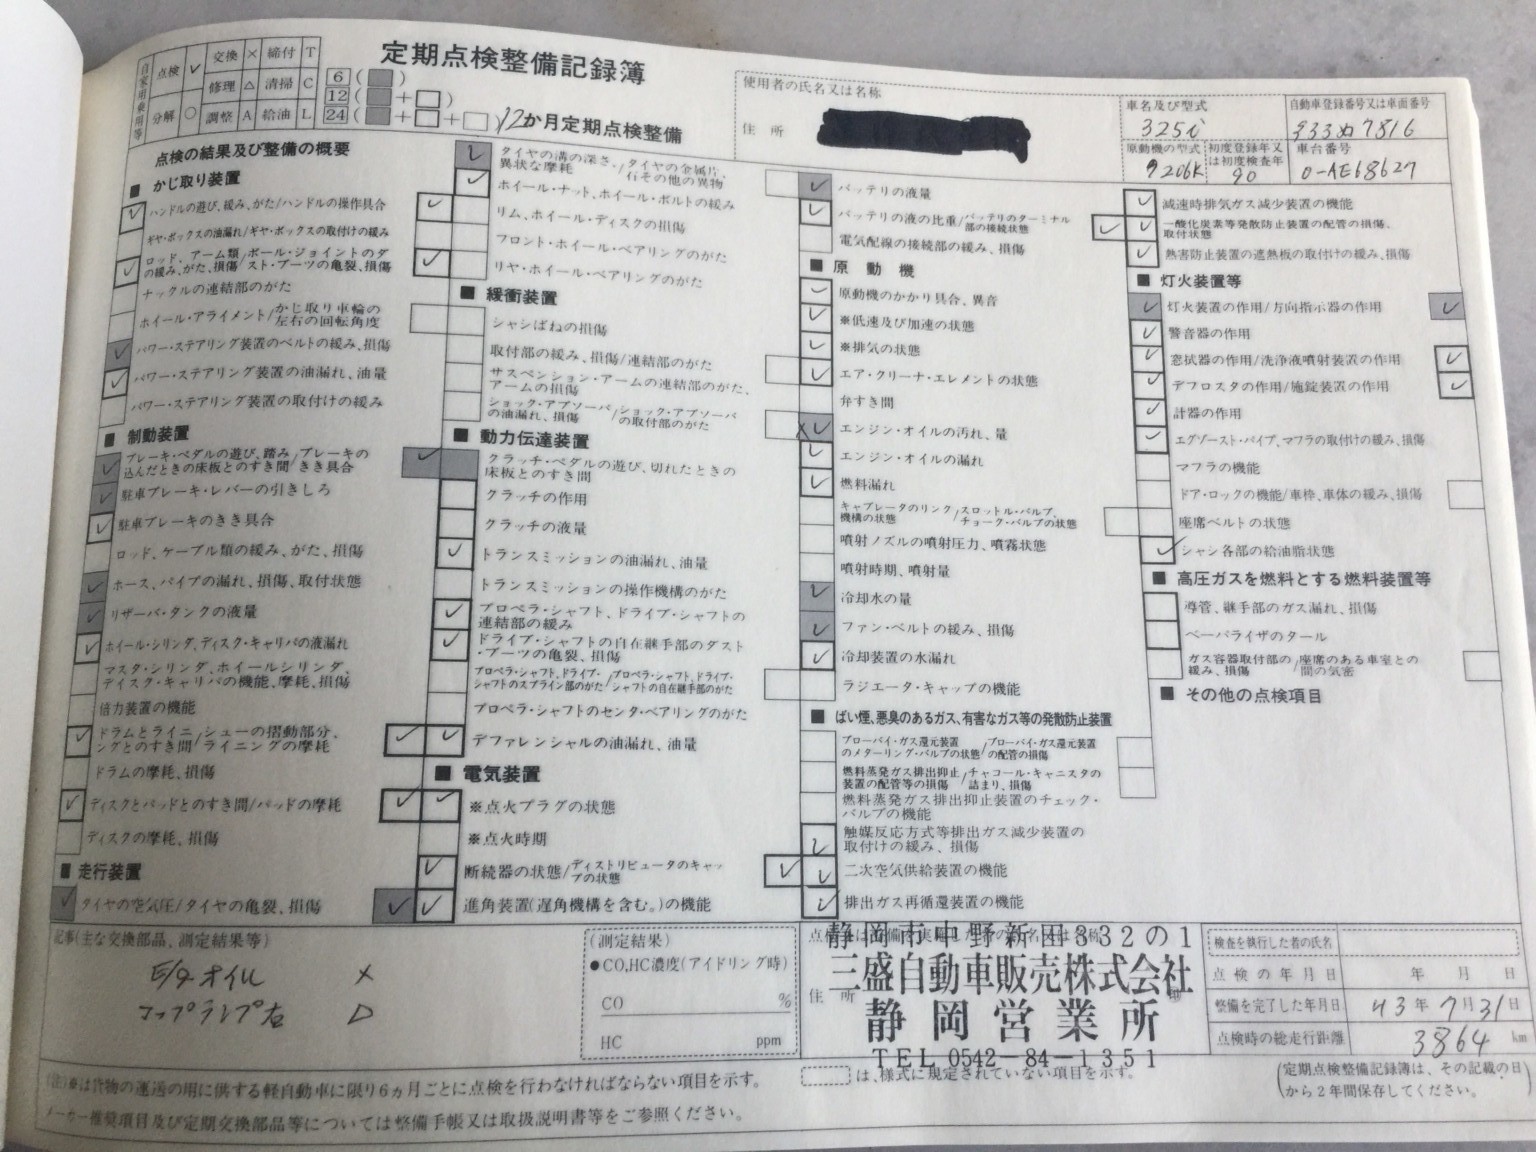 定期点検整備記録簿
自家用乗用等
点検 ✓ 交換 × 締付 T
修理 △ 清掃 C
分解 ○ 調整 A 給油 L
6 ( )
12 ( + )
24 ( + + )
12か月定期点検整備
使用者の氏名又は名称
住所
車名及び型式
325i
自動車登録番号又は車両番号
33ぬ7816
原動機の型式
初度登録年又は初度検査年
90
車台番号
0-AE68627
点検の結果及び整備の概要
■ かじ取り装置
✓ ハンドルの遊び、緩み、がた/ハンドルの操作具合 ✓
ギヤ・ボックスの油漏れ/ギヤ・ボックスの取付けの緩み
✓ ロッド、アーム類の緩み、がた、損傷/ボール・ジョイントのダスト・ブーツの亀裂、損傷 ✓
ナックルの連結部のがた
ホイール・アライメント/かじ取り車輪の左右の回転角度
✓ パワー・ステアリング装置のベルトの緩み、損傷
✓ パワー・ステアリング装置の油漏れ、油量
パワー・ステアリング装置の取付けの緩み
■ 制動装置
✓ ブレーキ・ペダルの遊び、踏み込んだときの床板とのすき間/ブレーキのきき具合 ✓
✓ 駐車ブレーキ・レバーの引きしろ
✓ 駐車ブレーキのきき具合
ロッド、ケーブル類の緩み、がた、損傷
✓ ホース、パイプの漏れ、損傷、取付状態
✓ リザーバ・タンクの液量
✓ ホイール・シリンダ、ディスク・キャリパの液漏れ
マスタ・シリンダ、ホイールシリンダ、ディスク・キャリパの機能、摩耗、損傷
倍力装置の機能
✓ ドラムとライニングとのすき間/シューの摺動部分、ライニングの摩耗 ✓
ドラムの摩耗、損傷
✓ ディスクとパッドとのすき間/パッドの摩耗 ✓
ディスクの摩耗、損傷
■ 走行装置
✓ タイヤの空気圧/タイヤの亀裂、損傷 ✓
✓ タイヤの溝の深さ、異状な摩耗/タイヤの金属片、石その他の異物
✓ ホイール・ナット、ホイール・ボルトの緩み
リム、ホイール・ディスクの損傷
フロント・ホイール・ベアリングのがた
リヤ・ホイール・ベアリングのがた
■ 緩衝装置
シャシばねの損傷
取付部の緩み、損傷/連結部のがた
サスペンション・アームの連結部のがた、アームの損傷
ショック・アブソーバの油漏れ、損傷/ショック・アブソーバの取付部のがた
■ 動力伝達装置
クラッチ・ペダルの遊び、切れたときの床板とのすき間
クラッチの作用
クラッチの液量
✓ トランスミッションの油漏れ、油量
トランスミッションの操作機構のがた
✓ プロペラ・シャフト、ドライブ・シャフトの連結部の緩み
✓ ドライブ・シャフトの自在継手部のダスト・ブーツの亀裂、損傷
プロペラ・シャフト、ドライブ・シャフトのスプライン部のがた/プロペラ・シャフト、ドライブ・シャフトの自在継手部のがた
プロペラ・シャフトのセンタ・ベアリングのがた
✓ デファレンシャルの油漏れ、油量
■ 電気装置
✓ ※点火プラグの状態
※点火時期
✓ 断続器の状態/ディストリビュータのキャップの状態 ✓
✓ 進角装置(遅角機構を含む。)の機能
✓ バッテリの液量
✓ バッテリの液の比重/バッテリのターミナル部の接続状態 ✓
電気配線の接続部の緩み、損傷
■ 原動機
✓ 原動機のかかり具合、異音
✓ ※低速及び加速の状態
✓ ※排気の状態
✓ エア・クリーナ・エレメントの状態
弁すき間
× ✓ エンジン・オイルの汚れ、量
✓ エンジン・オイルの漏れ
✓ 燃料漏れ
キャブレータのリンク機構の状態/スロットル・バルブ、チョーク・バルブの状態
噴射ノズルの噴射圧力、噴霧状態
噴射時期、噴射量
✓ 冷却水の量
✓ ファン・ベルトの緩み、損傷
✓ 冷却装置の水漏れ
ラジエータ・キャップの機能
■ ばい煙、悪臭のあるガス、有害なガス等の発散防止装置
ブローバイ・ガス還元装置のメターリング・バルブの状態/ブローバイ・ガス還元装置の配管の損傷
燃料蒸発ガス排出抑止装置の配管等の損傷/チャコール・キャニスタの詰まり、損傷
燃料蒸発ガス排出抑止装置のチェック・バルブの機能
✓ 触媒反応方式等排出ガス減少装置の取付けの緩み、損傷
✓ 二次空気供給装置の機能
✓ 排出ガス再循環装置の機能
✓ 減速時排気ガス減少装置の機能
✓ 一酸化炭素等発散防止装置の配管の損傷、取付状態
✓ 熱害防止装置の遮熱板の取付けの緩み、損傷
■ 灯火装置等
✓ 灯火装置の作用/方向指示器の作用 ✓
✓ 警音器の作用
✓ 窓拭器の作用/洗浄液噴射装置の作用 ✓
✓ デフロスタの作用/施錠装置の作用 ✓
✓ 計器の作用
✓ エグゾースト・パイプ、マフラの取付けの緩み、損傷
マフラの機能
ドア・ロックの機能/車枠、車体の緩み、損傷
座席ベルトの状態
✓ シャシ各部の給油脂状態
■ 高圧ガスを燃料とする燃料装置等
導管、継手部のガス漏れ、損傷
ベーパライザのタール
ガス容器取付部の緩み、損傷/座席のある車室との間の気密
■ その他の点検項目
記事(主な交換部品、測定結果等)
E/gオイル ×
マップランプ右 △
(測定結果)
●CO,HC濃度(アイドリング時)
CO %
HC ppm
静岡市中野新田332の1
三盛自動車販売株式会社
住所
静岡営業所
TEL 0542-84-1351
検査を執行した者の氏名
点検の年月日 年 月 日
整備を完了した年月日 H3年7月31日
点検時の総走行距離 3864 km
(注)※は貨物の運送の用に供する軽自動車に限り6ヵ月ごとに点検を行わなければならない項目を示す。
は、様式に規定されていない項目を示す。
(定期点検整備記録簿は、その記載の日から2年間保存してください。)
メーカー推奨項目及び定期交換部品等については整備手帳又は取扱説明書等をご参照ください。